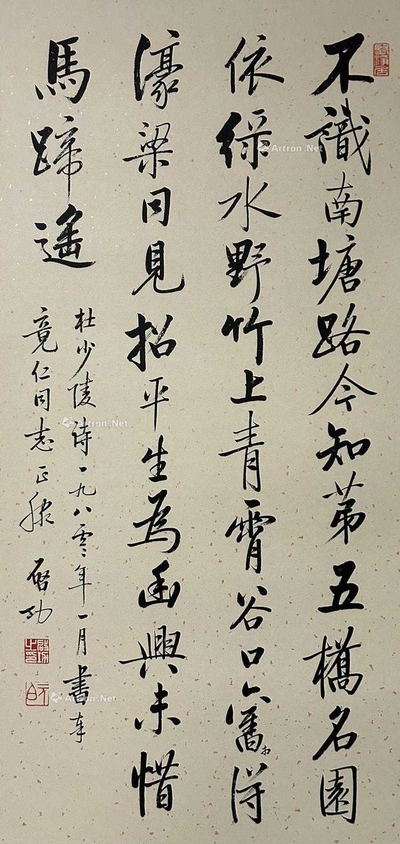 不識南塘路今知苐五橋名園
依綠水野竹上青霄谷口舊相得
濠梁同見招平生為幽興未惜
馬蹄遙
杜少陵詩一九八零年一月書奉
竟仁同志正腕 啓功
Artron.Net
Artron.Net
Artron.Net
Artron.Net